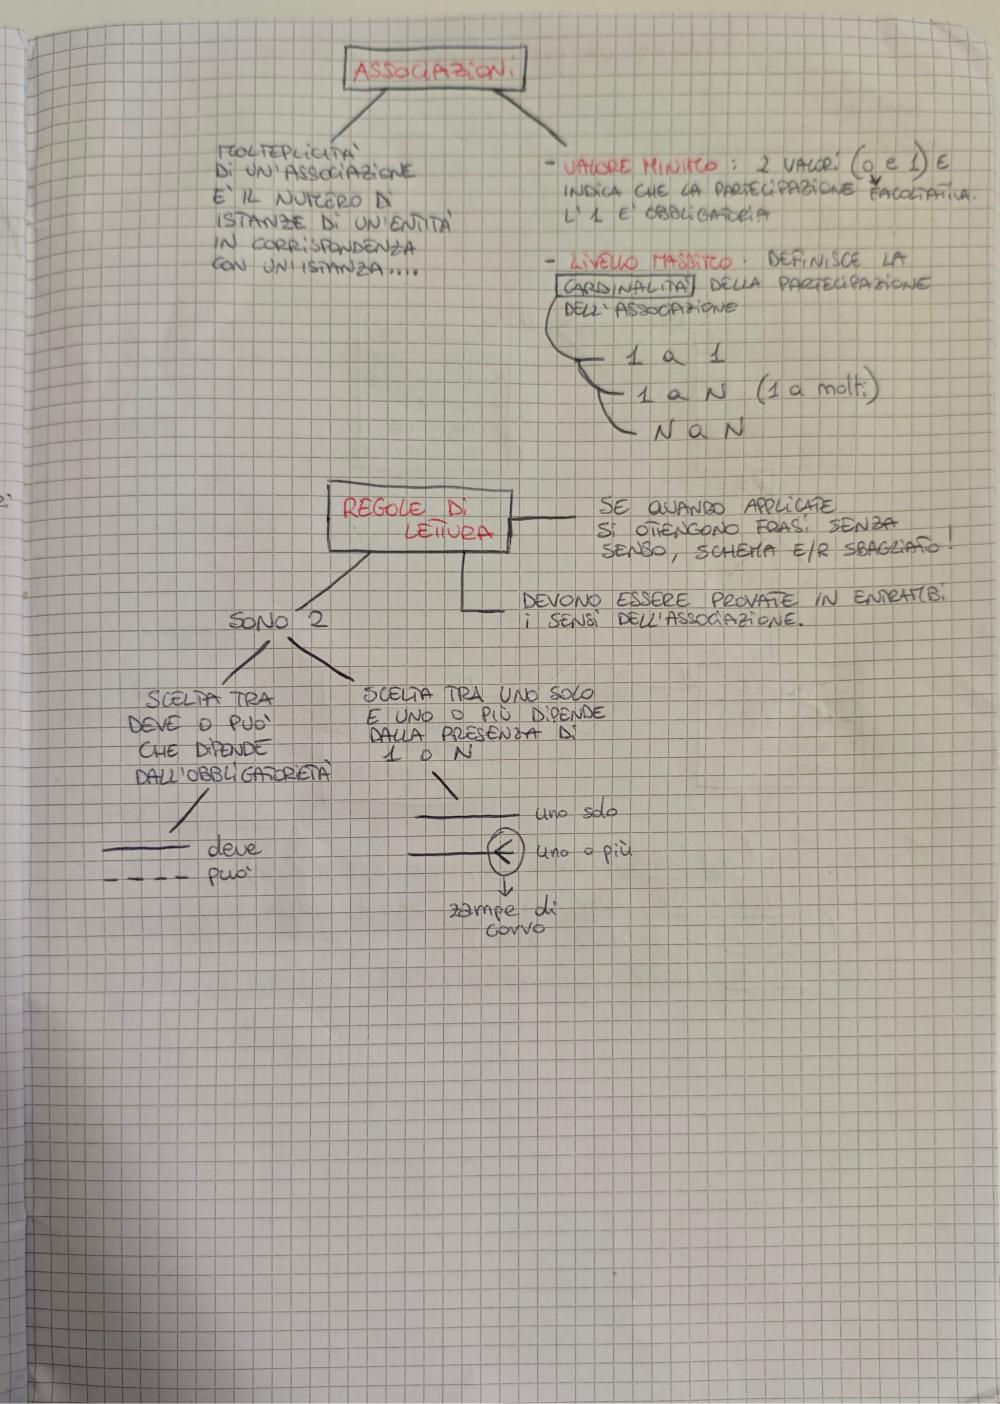 ASSOCIAZIONI
MOLTEPLICITA'
DI UN'ASSOCIAZIONE
E' IL NUMERO DI
ISTANZE DI UN'ENTITA'
IN CORRISPONDENZA
CON UN'ISTANZA....
- VALORE MINIMO : 2 VALORI (0 e 1) E
INDICA CHE LA PARTECIPAZIONE FACOLTATIVA.
L' 1 E' OBBLIGATORIA
- LIVELLO MASSIMO : DEFINISCE LA
CARDINALITA' DELLA PARTECIPAZIONE
DELL'ASSOCIAZIONE
1 a 1
1 a N (1 a molti)
N a N
REGOLE DI
LETTURA
SE QUANDO APPLICATE
SI OTTENGONO FRASI SENZA
SENSO, SCHEMA E/R SBAGLIATO!
DEVONO ESSERE PROVATE IN ENTRAMBI
I SENSI DELL'ASSOCIAZIONE.
SONO 2
SCELTA TRA
DEVE O PUO'
CHE DIPENDE
DALL'OBBLIGATORIETÀ
SCELTA TRA UNO SOLO
E UNO O PIÙ DIPENDE
DALLA PRESENZA DI
1 O N
deve
può
uno solo
uno o più
zampe di
corvo